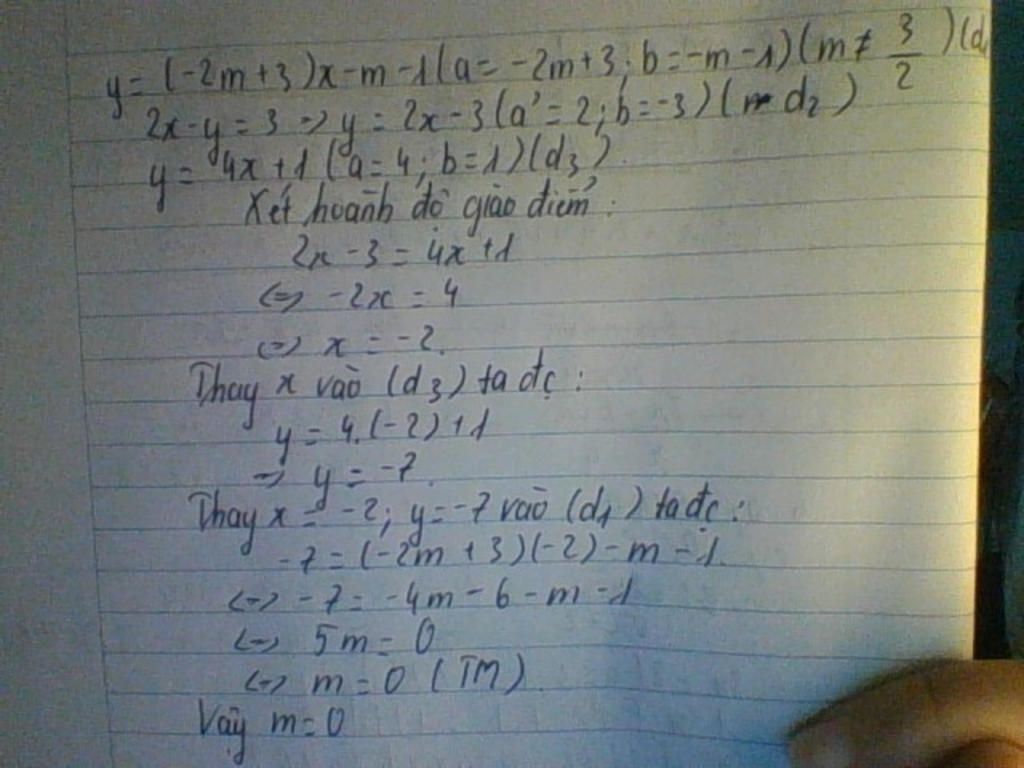 y = (-2m+3)x-m-1(a=-2m+3; b=-m-1)(m≠ 3/2 )(d
2x-y=3 → y = 2x-3(a'=2; b=-3)( d2)
y = 4x+1 (a=4; b=1)(d3).
Xét hoành độ giao điểm:
2x-3 = 4x+1
<=> -2x = 4
<=> x = -2.
Thay x vào (d3) ta đc:
y = 4.(-2)+1
→ y = -7.
Thay x = -2; y=-7 vào (d1) ta đc:
-7 = (-2m+3)(-2)-m-1.
<=> -7 = -4m-6-m-1
<=> 5m = 0
<=> m = 0 (TM)
Vậy m=0